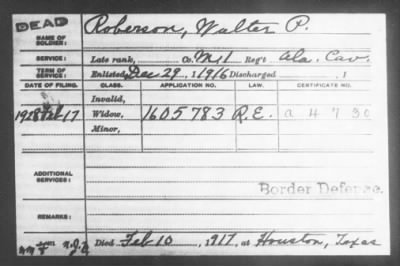 DEAD
NAME OF SOLDIER: Roberson, Walter P.
SERVICE: Late rank, Co. M 1 Reg't Ala. Cav.
TERM OF SERVICE: Enlisted Dec 29, 1916 Discharged , 1
DATE OF FILING. CLASS. APPLICATION NO. LAW. CERTIFICATE NO.
Invalid,
1928 17 Widow, 1605783 R.E. a 4 7 30
Minor,
ADDITIONAL SERVICES:
Border Defense.
REMARKS:
Died Feb 10, 1917, at Houston, Texas